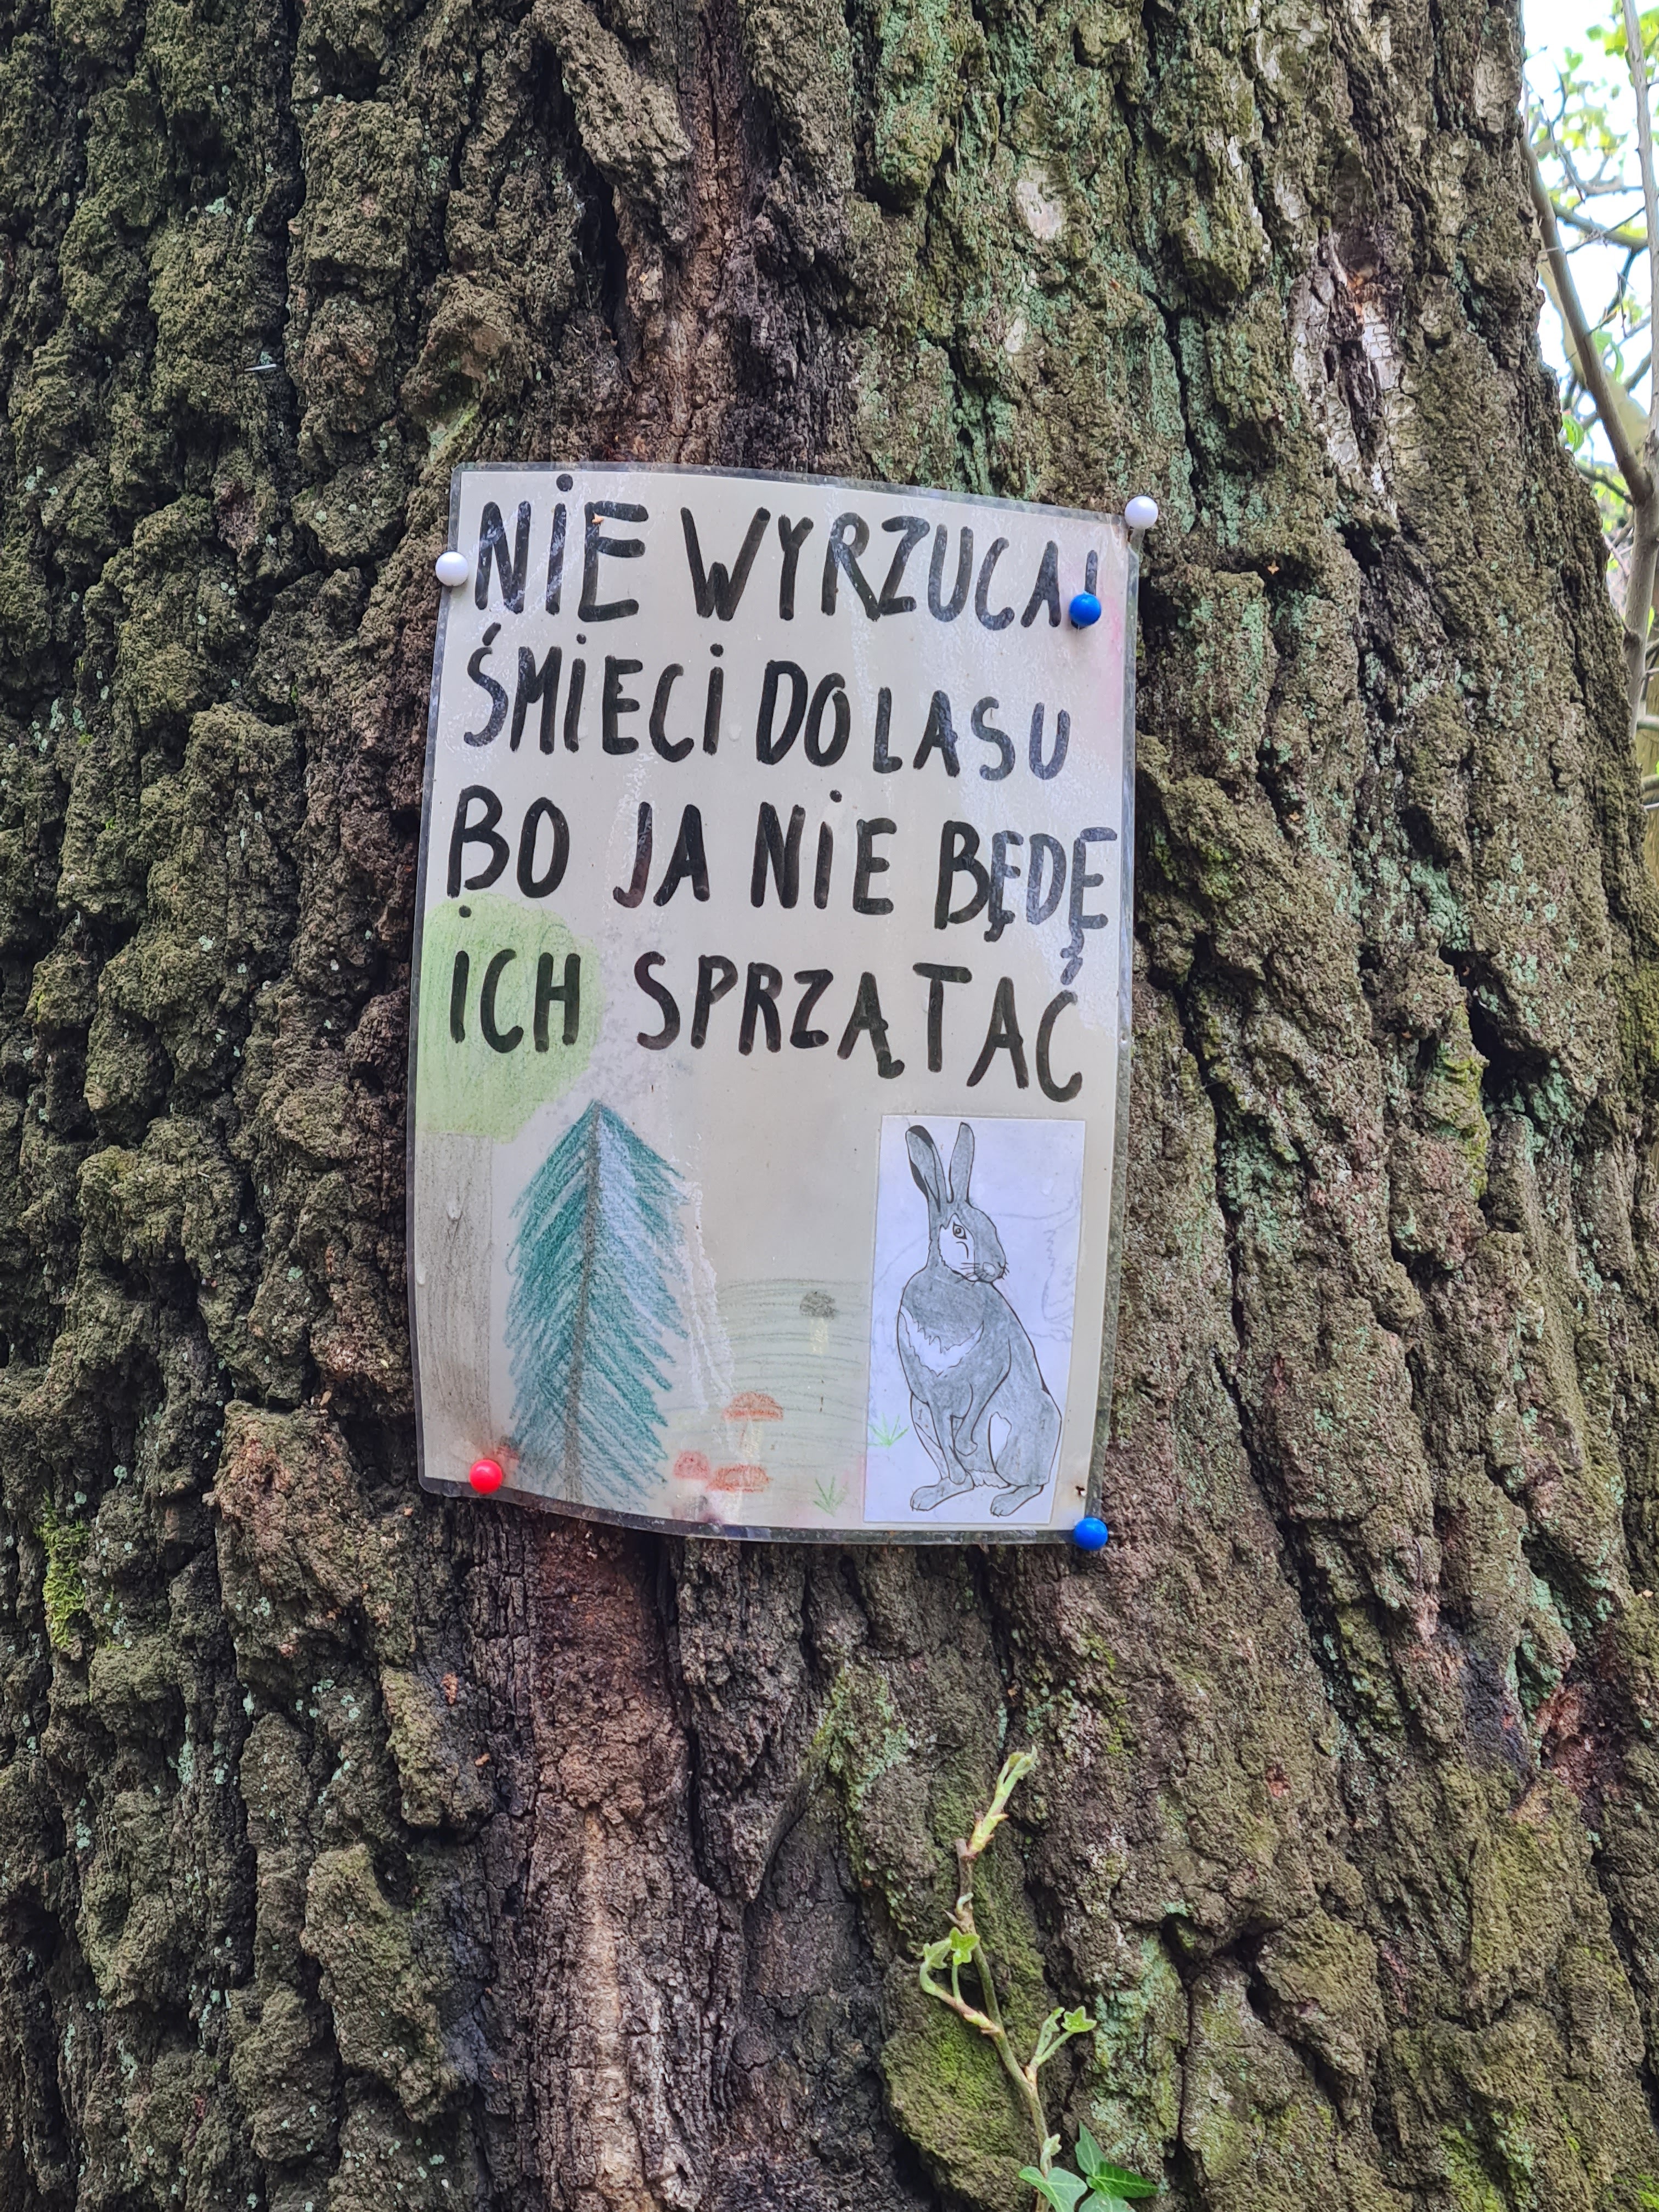 NIE WYRZUCAJ
ŚMIECI DO LASU
BO JA NIE BĘDĘ
ICH SPRZĄTAĆ